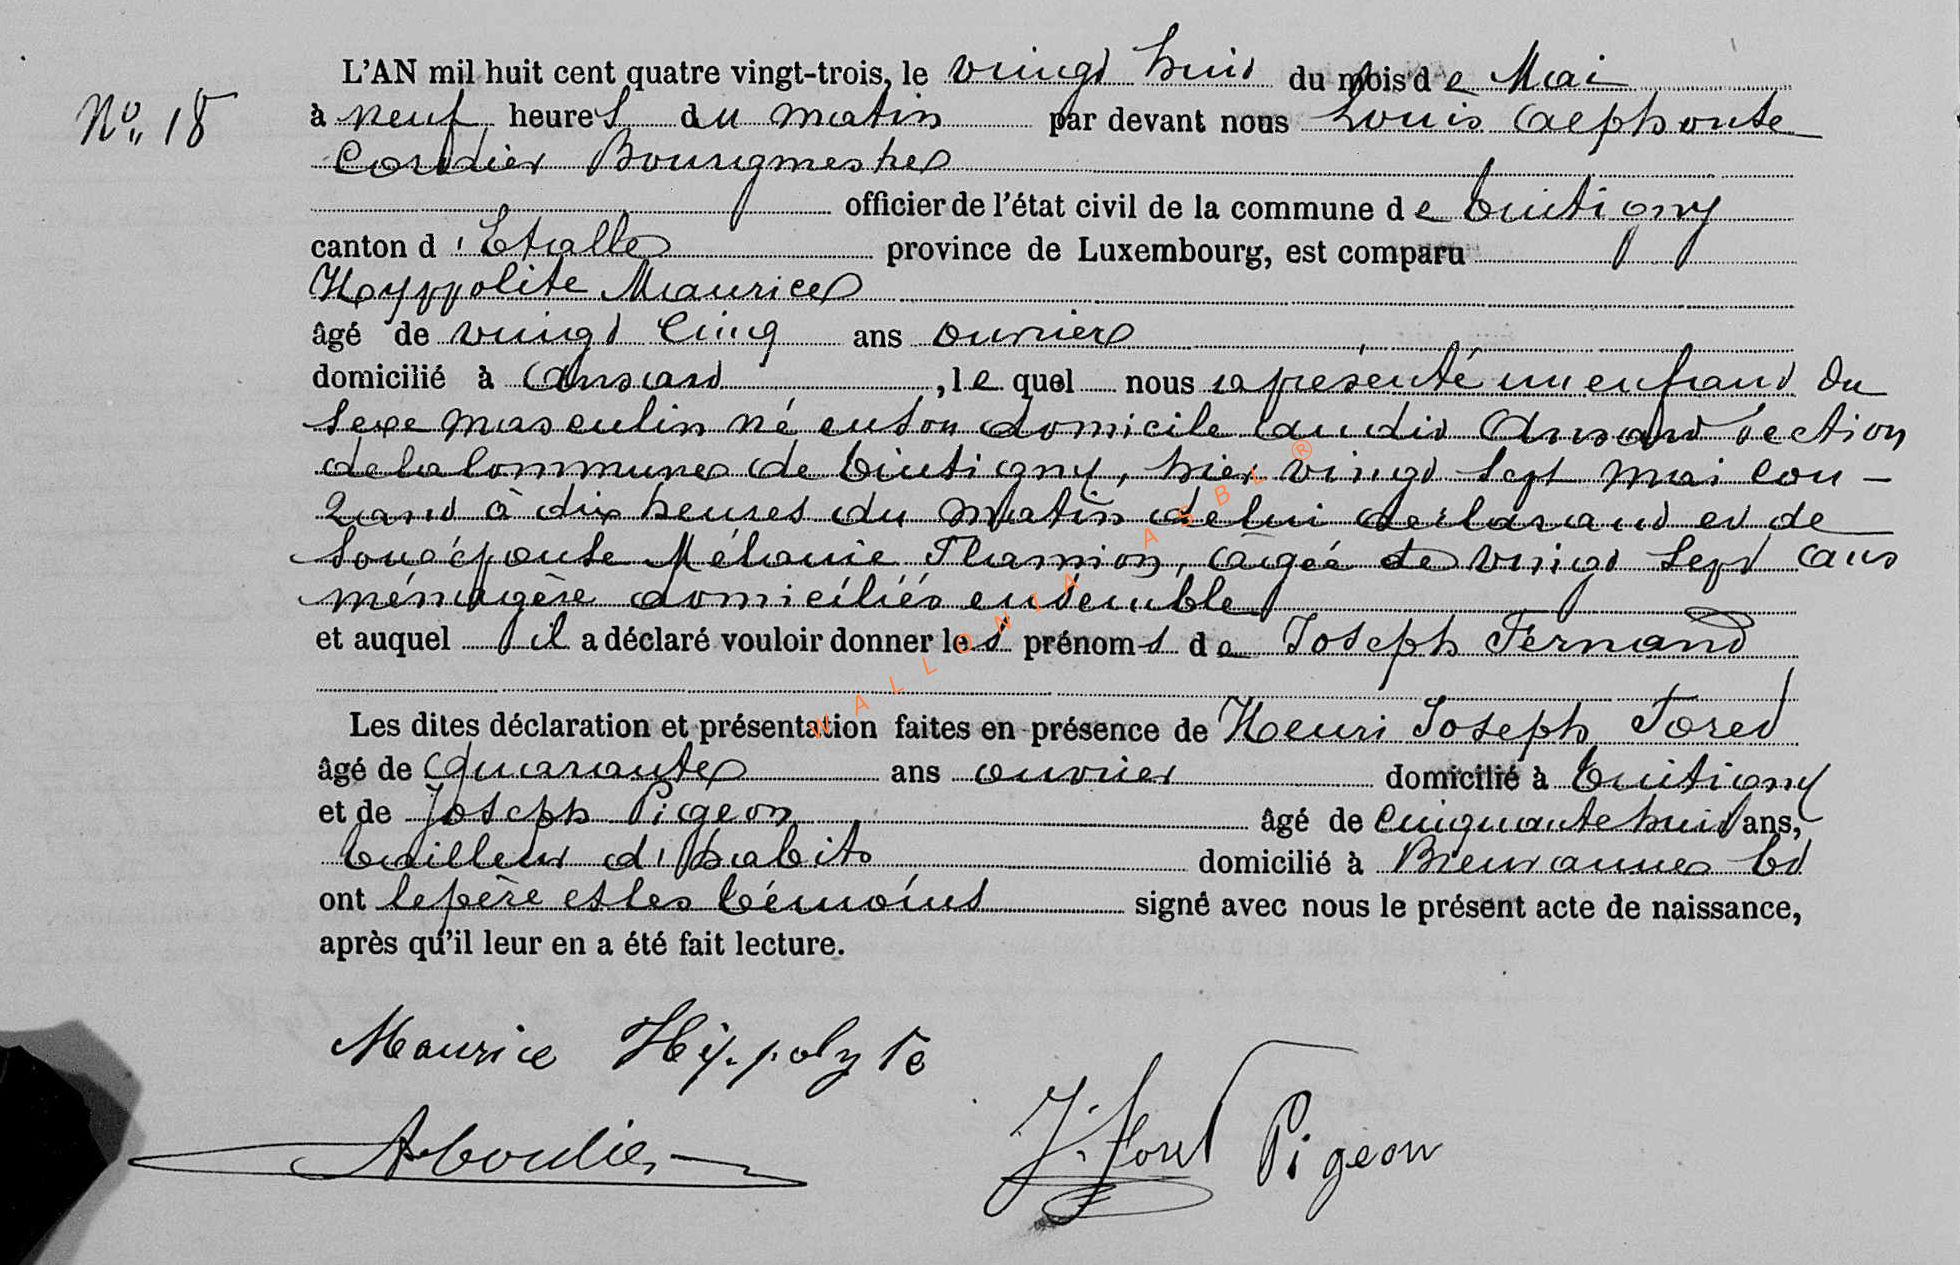 L'AN mil huit cent quatre vingt-trois, le vingt huit du mois de Mai
No. 18
à neuf heures du matin par devant nous Louis Alphonse
Cordier Bourgmestre
officier de l'état civil de la commune de Tintigny
canton d'Etalle province de Luxembourg, est comparu
Hyppolite Maurice
âgé de vingt cinq ans ouvrier
domicilié à Ansart, le quel nous a présenté un enfant du
sexe masculin né en son domicile audit Ansart section
de la commune de Tintigny, hier vingt sept mai cou-
rant à dix heures du matin de lui déclarant et de
son épouse Mélanie Thamion, âgée de vingt sept ans
ménagère domiciliés ensemble
et auquel il a déclaré vouloir donner les prénoms de Joseph Fernand
Les dites déclaration et présentation faites en présence de Henri Joseph Foret
âgé de quarante ans ouvrier domicilié à Tintigny
et de Joseph Pigeon âgé de cinquante huit ans,
tailleur d'habits domicilié à Breuvanne Et
ont le père et les témoins signé avec nous le présent acte de naissance,
après qu'il leur en a été fait lecture.
Maurice Hippolyte
J. Foret Pigeon
WALLONIA ASBL ®